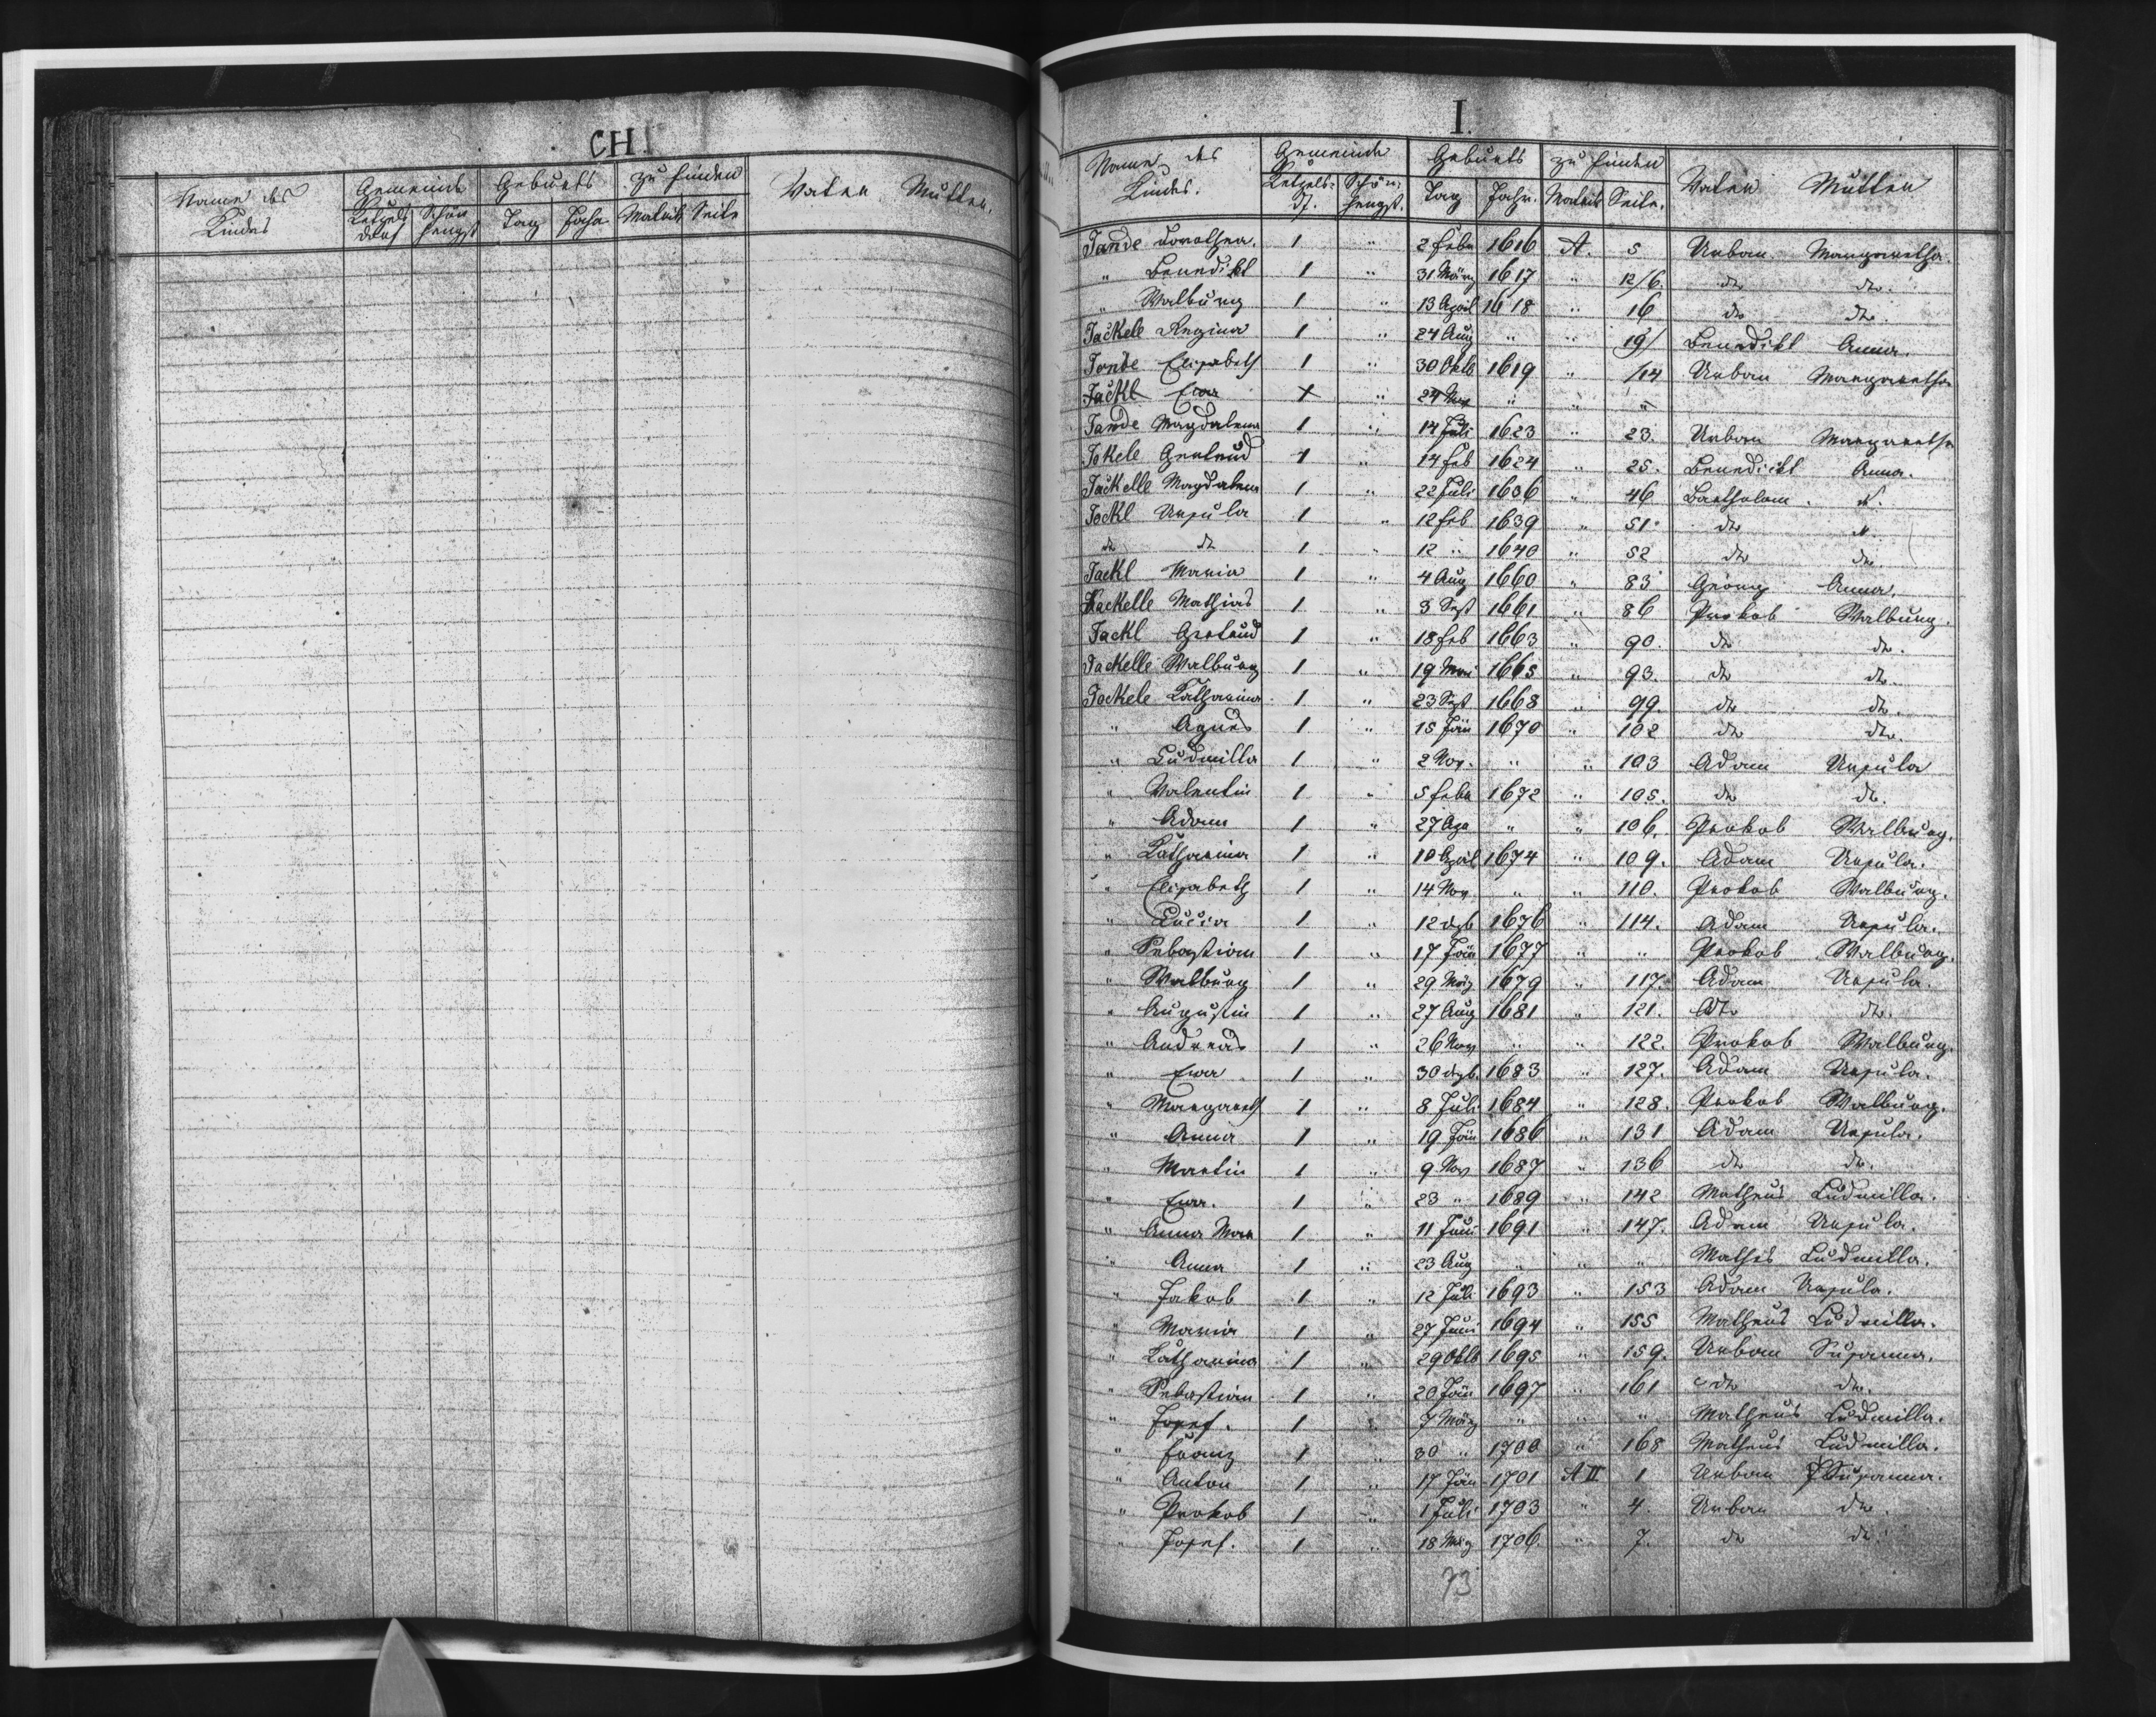 CH.
Name des Kindes Gemeinde Geburts zu finden Vater Mutter.
Ketzels dorf Schön hengst Tag Jahr Matrik Seite
I.
Name des Kindes. Gemeinde Geburts zu finden Vater Mutter
Ketzels= df. Schön= hengst. Tag Jahr. Matrik Seite.
Jande Dorothea. 1 " 2 Febr 1616 A. 5 Urban Margaretha.
" Benedikt 1 " 31 März 1617 " 12/6. dto dto.
" Walburg 1 " 13 April 1618 " 16 dto dto.
Jackele Regina 1 " 24 Aug " " 19/ Benedikt Anna.
Jande Elisabeth 1 " 30 Oktb 1619 " /14 Urban Margaretha
Jäckl Ewa " 24 Nov " " "
Jande Magdalena 1 " 14 Juli 1623 " 23. Urban Margaretha
Jokele Gertrud 1 " 14 Feb 1624 " 25. Benedickt Anna.
Jäckelle Magdalena 1 " 22 Juli 1636 " 46 Bartholom. N.
Jockl Ursula 1 " 12 Feb 1639 " 51. dto N.
dto dto 1 " 12 " 1640 " 52 dto dto.
Jackl Maria 1 " 4 Aug 1660 " 83 Georg Anna.
Jackelle Mathias 1 " 3 Sept 1661 " 86 Prokob Walburg.
Jackl Gertrud 1 " 18 Feb 1663 " 90. dto dto.
Jackelle Walburg 1 " 19 Mai 1665 " 93. dto dto.
Jockele Katharina 1 " 23 Sept 1668 " 99. dto dto.
" Agnes 1 " 15 Jän 1670 " 102 dto dto.
" Ludmilla 1 " 2 Nov. " " 103 Adam Ursula
" Valentin 1 " 5 Febr 1672 " 105. dto dto.
" Adam 1 " 27 " " 106. Prokob Walburg.
" Katharina 1 " 10 April 1674 " 109. Adam Ursula.
" Elisabeth 1 " 14 Nov " " 110. Prokob Walburg.
" Lucia 1 " 12 dzb 1676 " 114. Adam Ursula.
" Sebastian 1 " 17 Jän 1677 " " Prokob Walburg.
" Walburg 1 " 29 März 1679 " 117. Adam Ursula.
" Augustin 1 " 27 Aug 1681 " 121. dto dto.
" Andreas 1 " 26 Nov " " 122. Prokob Walburg.
" Ewa 1 " 30 dzb. 1683 " 127. Adam Ursula.
" Margareth 1 " 8 Juli 1684 " 128. Prokob Walburg.
" Anna 1 " 19 Jän 1686 " 131 Adam Ursula.
" Martin 1 " 9 Nov 1687 " 136 dto dto.
" Ewa. 1 " 23 " 1689 " 142 Matheus Ludmilla.
" Anna Mar 1 " 11 Juni 1691 " 147. Adam Ursula.
" Anna 1 " 23 Aug " " " Mathes Ludmilla.
" Jakob 1 " 12 Juli 1693 " 153 Adam Ursula.
" Maria 1 " 27 Juni 1694 " 155 Matheus Ludmilla.
" Katharina 1 " 29 Oktb 1695 " 159. Urban Susanna.
" Sebastian 1 " 20 Jän 1697 " 161 dto dto.
" Josef. 1 " 7 März " " " Matheus Ludmilla.
" Franz 1 " 30 " 1700 " 168 Matheus Ludmilla.
" Anton 1 " 17 Jän 1701 A II 1 Urban Susanna.
" Prokob 1 " 1 Juli 1703 " 4. Urban dto
" Josef. 1 " 18 März 1706. " 7. dto dto
73